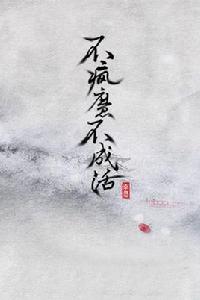 不疯魔不成活